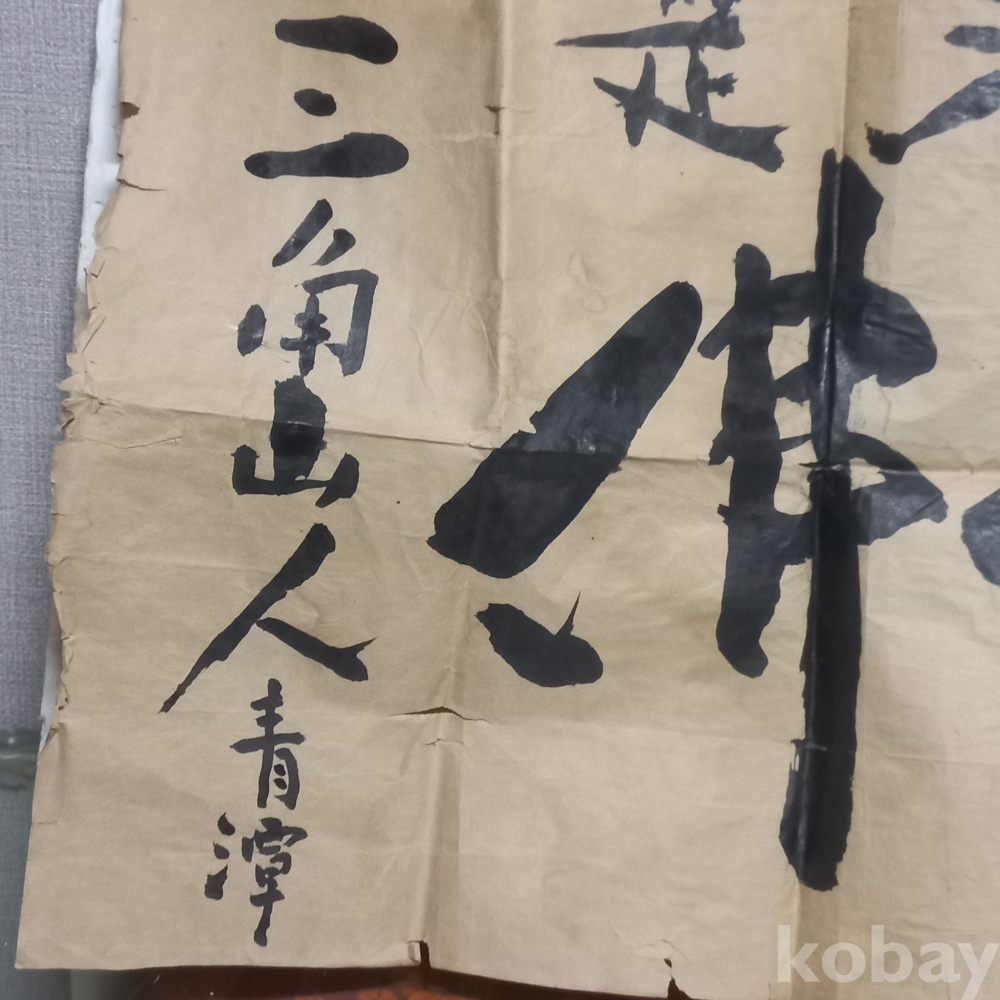 是佛
三角山人
青潭
kobay